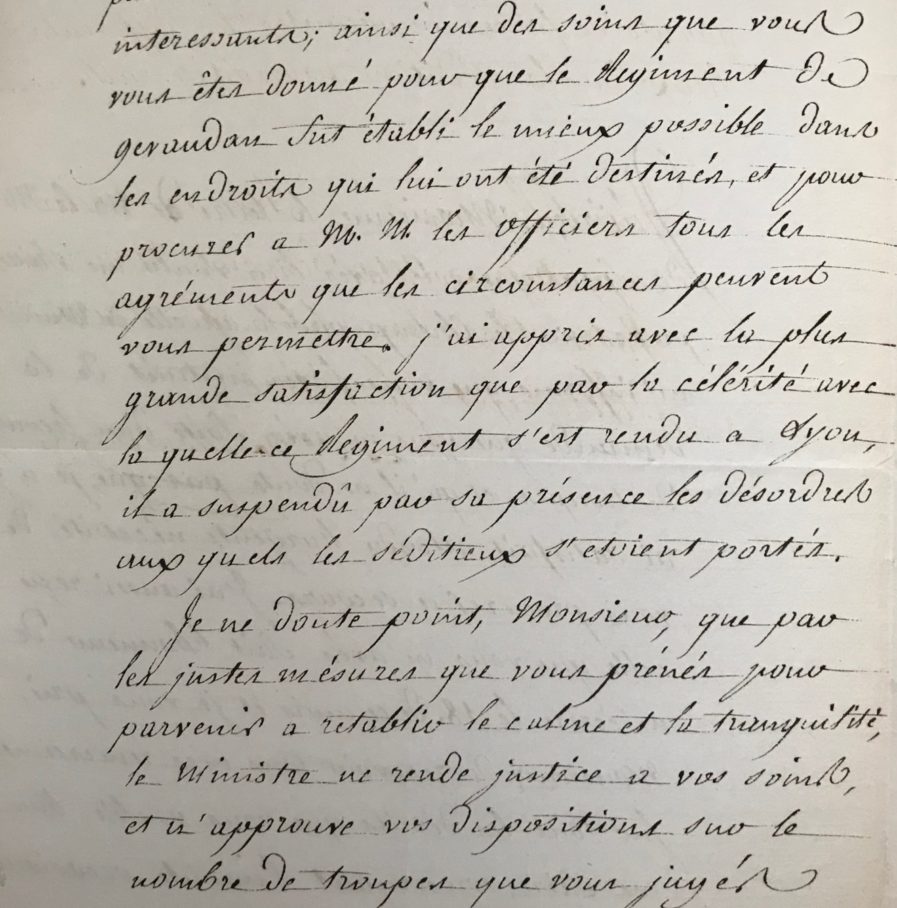 interessants; ainsi que des soins que vous
vous êtes donné pour que le Regiment de
gevaudan fut établi le mieux possible dans
les endroits qui lui ont été destinés, et pour
procurer a M. M. les officiers tous les
agréments que les circonstances peuvent
vous permettre. j'ai appris avec la plus
grande satisfaction que par la célérité avec
la quelle ce Regiment s'est rendu a Lyon,
il a suspendû par sa présence les désordres
aux quels les séditieux s'etoient portés.
Je ne doute point, Monsieur, que par
les justes mésures que vous prénés pour
parvenir a retablir le calme et la tranquilité,
le Ministre ne rende justice a vos soins,
et n'approuve vos dispositions sur le
nombre de troupes que vous jugés